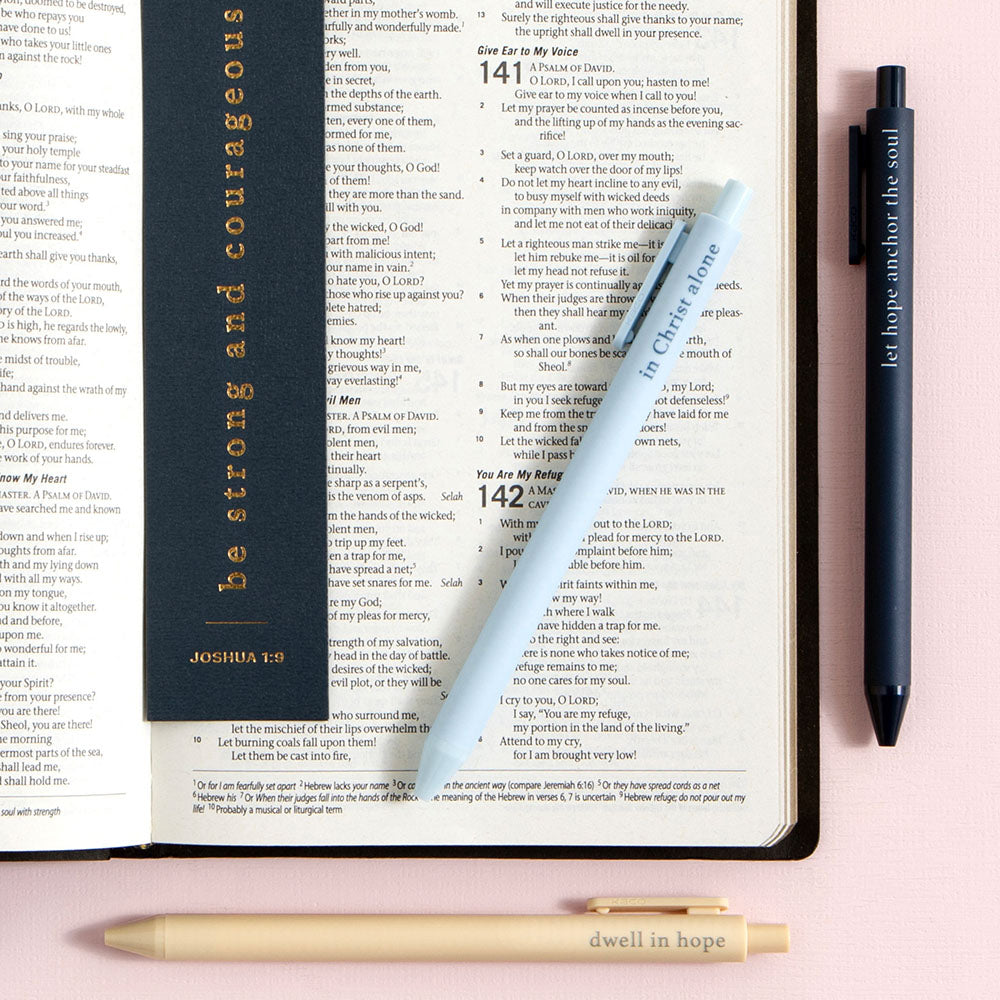 you doomed to be destroyed,
be who repays you
have done to us!
who takes your little ones
against the rock!
O LORD, with my whole
sing your praise;
your holy temple
to your name for your steadfast
faithfulness,
above all things
your word.³
you answered me;
you increased.⁴
earth shall give you thanks,
the words of your mouth,
of the ways of the LORD,
of the LORD.
is high, he regards the lowly,
he knows from afar.
midst of trouble,
life;
hand against the wrath of my
and delivers me.
his purpose for me;
O LORD, endures forever.
work of your hands.
Know My Heart
A PSALM OF DAVID.
have searched me and known
down and when I rise up;
thoughts from afar.
and my lying down
with all my ways.
on my tongue,
you know it altogether.
and before,
upon me.
wonderful for me;
attain it.
your Spirit?
from your presence?
you are there!
Sheol, you are there!
morning
parts of the sea,
shall lead me,
shall hold me.
soul with strength
be strong and courageous
JOSHUA 1:9
in my mother's womb.
and wonderfully made.¹
very well.
from you,
in secret,
the depths of the earth.
substance;
every one of them,
formed for me,
as none of them.
your thoughts, O God!
of them!
they are more than the sand.
with you.
the wicked, O God!
from me!
with malicious intent;
your name in vain.²
hate you, O LORD?
those who rise up against you?
hatred;
know my heart!
thoughts!³
grievous way in me,
way everlasting!⁴
Evil Men
A PSALM OF DAVID.
from evil men;
violent men,
their heart
continually.
sharp as a serpent's,
is the venom of asps. Selah
the hands of the wicked;
violent men,
trip up my feet.
a trap for me,
spread a net;⁵
have set snares for me. Selah
are my God;
of my pleas for mercy,
strength of my salvation,
head in the day of battle.
desires of the wicked;
evil plot, or they will be
who surround me,
let the mischief of their lips overwhelm
10 Let burning coals fall upon them!
Let them be cast into fire,
and will execute justice for the needy.
13 Surely the righteous shall give thanks to your name;
the upright shall dwell in your presence.
Give Ear to My Voice
141 A PSALM OF DAVID.
O LORD, I call upon you; hasten to me!
Give ear to my voice when I call to you!
2 Let my prayer be counted as incense before you,
and the lifting up of my hands as the evening sac-
rifice!
3 Set a guard, O LORD, over my mouth;
keep watch over the door of my lips!
4 Do not let my heart incline to any evil,
to busy myself with wicked deeds
in company with men who work iniquity,
and let me not eat of their
5 Let a righteous man strike me—it is
let him rebuke me—it is oil for
let my head not refuse it.
Yet my prayer is continually deeds.
6 When their judges are
then they shall hear my pleas-
ant.
7 As when one plows and
so shall our bones be mouth of
Sheol.⁸
8 But my eyes are toward my Lord;
in you I seek refuge; not defenseless!⁹
9 Keep me from the have laid for me
and from the
10 Let the wicked own nets,
while I pass
You Are My Refuge
142 WHEN HE WAS IN THE
1 With my out to the LORD;
plead for mercy to the LORD.
2 I complaint before him;
before him.
3 spirit faints within me,
my way!
where I walk
have hidden a trap for me.
to the right and see:
there is none who takes notice of me;
refuge remains to me;
no one cares for my soul.
I cry to you, O LORD;
I say, "You are my refuge,
my portion in the land of the living."
6 Attend to my cry,
for I am brought very low!
¹Or for I am fearfully set apart ²Hebrew lacks your name ³Or in the ancient way (compare Jeremiah 6:16) ⁵Or they have spread cords as a net
⁶Hebrew his ⁷Or When their judges fall into the hands of the Rock meaning of the Hebrew in verses 6, 7 is uncertain ⁹Hebrew refuge; do not pour out my
life! ¹⁰Probably a musical or liturgical term
in Christ alone
let hope anchor the soul
dwell in hope